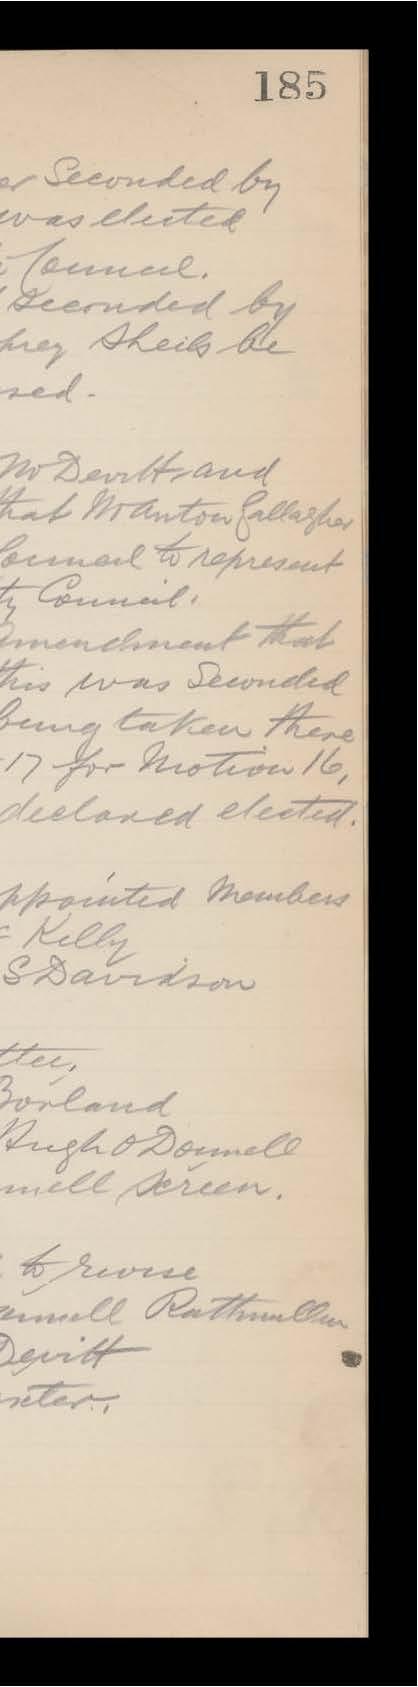 185
er Seconded by
was elected
Council.
Seconded by
hrey Sheils be
sed.
McDevitt and
that Mr Anton Gallagher
Council to represent
ty Council.
Amendment that
this was Seconded
being taken there
17 for Motion 16,
declared elected.
ppointed Members
Kelly
S Davidson
ttee,
Borland
Hugh O Donnell
nnell Screen.
to revise
Rathmullen
Devitt